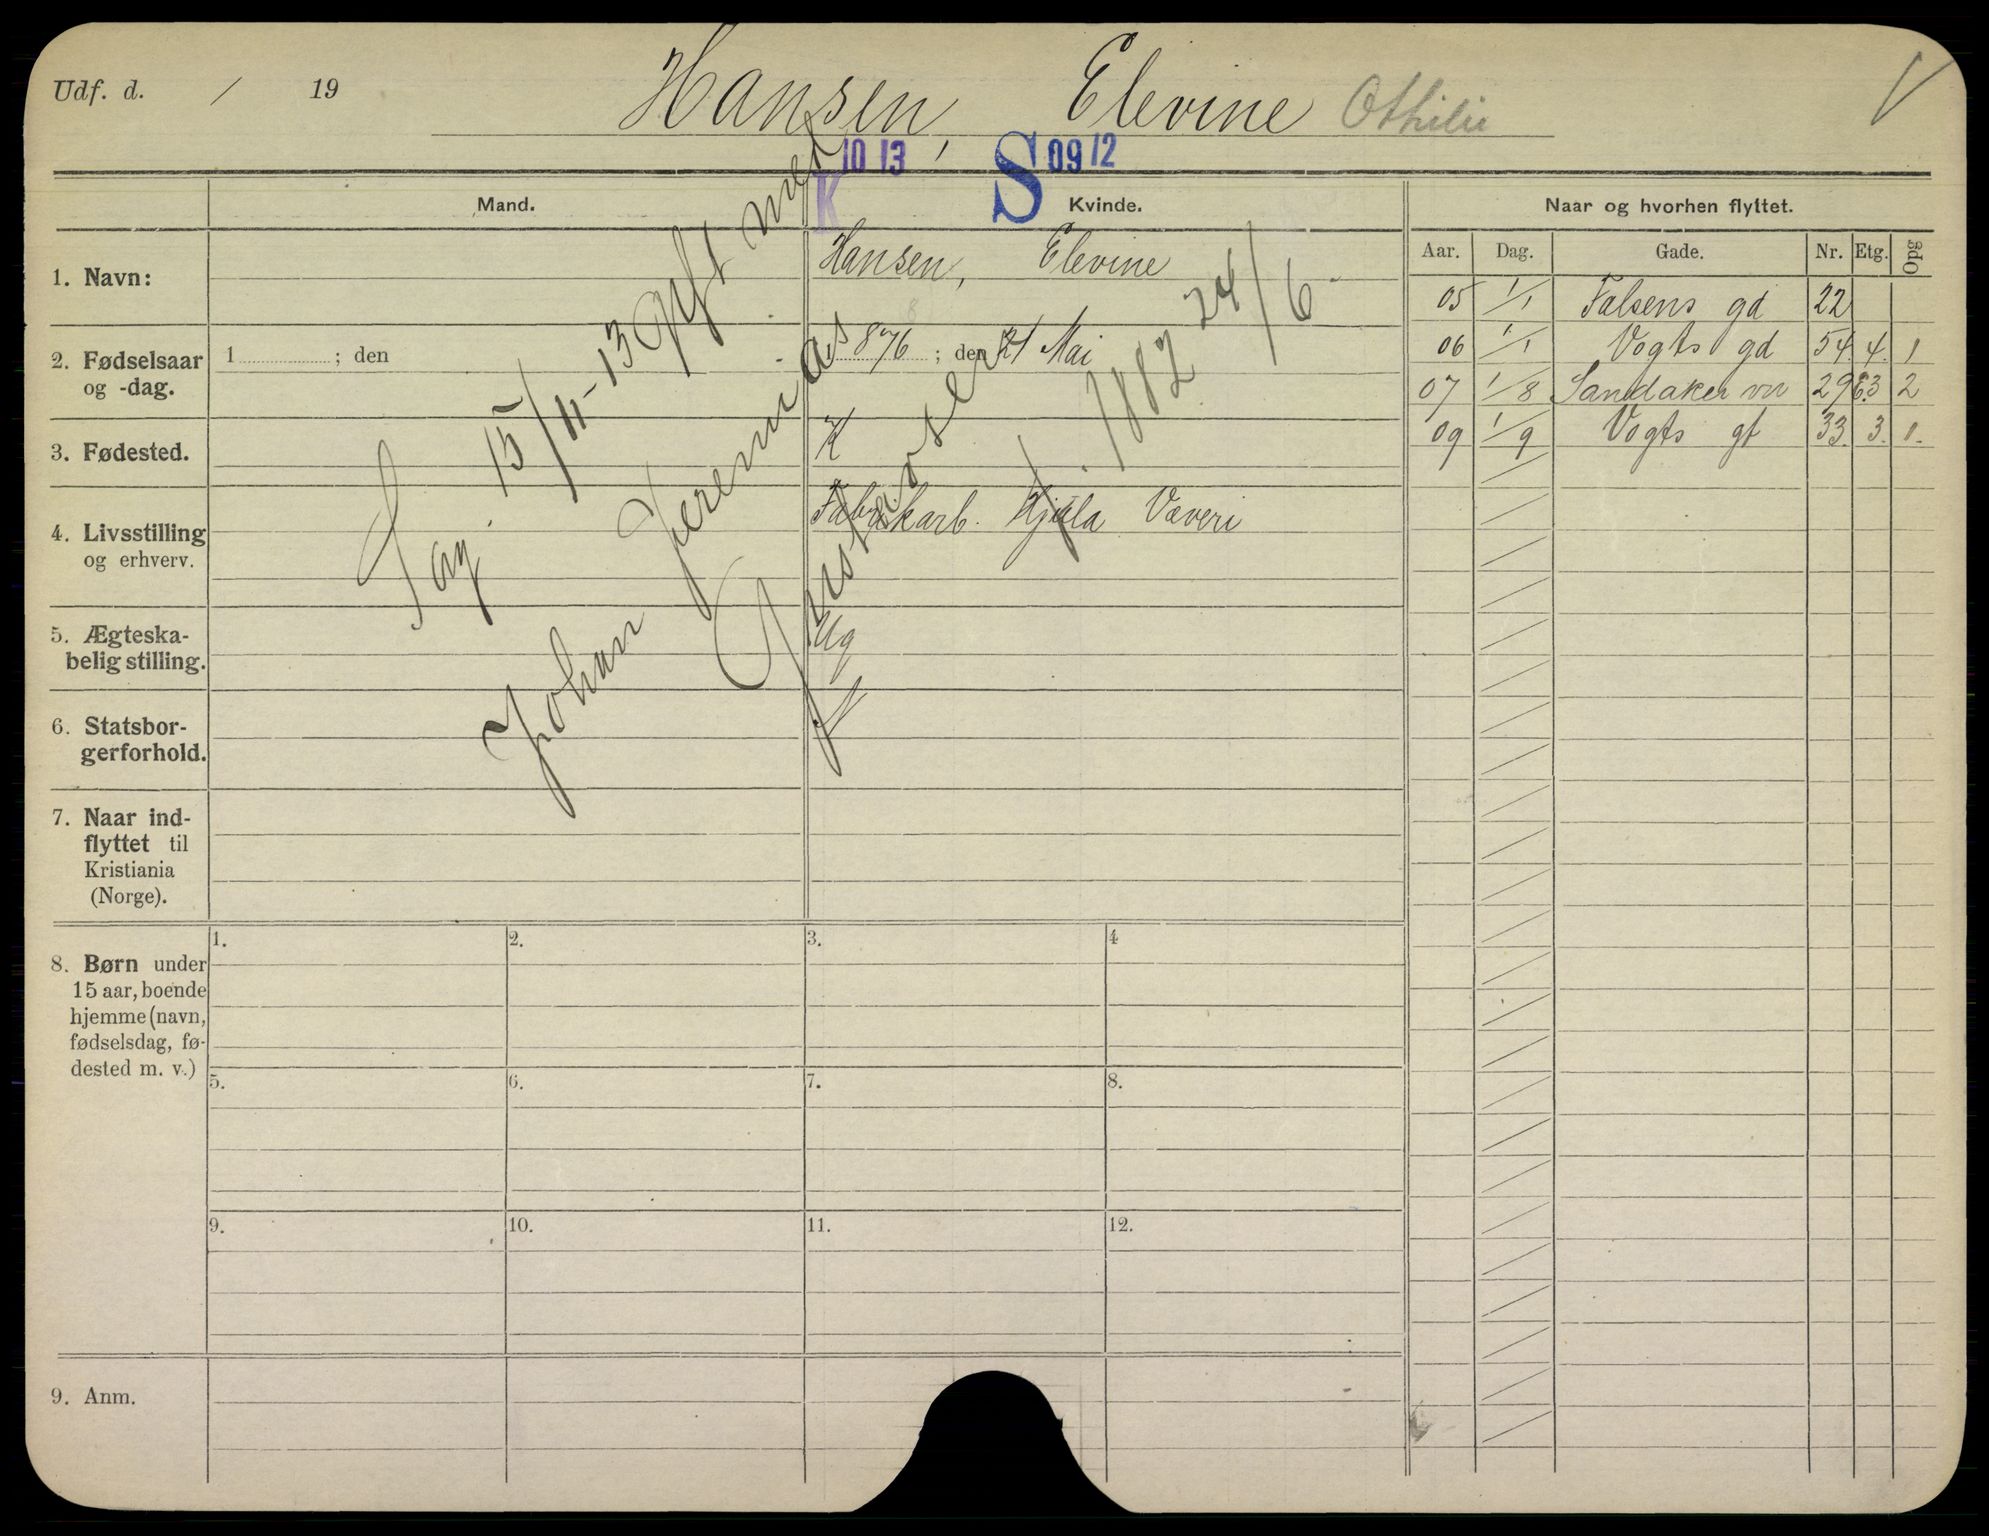 Udf. d. / 19
Hansen, Elevine Othilie
V
K 10 13
S 09 12
Mand.
Kvinde.
Naar og hvorhen flyttet.
Aar. Dag. Gade. Nr. Etg. Opg
05 1/1 Falsens gd 22
06 1/1 Vogts gd 54. 4. 1
07 1/8 Sandaker vn 29 3 2
09 1/9 Vogts gt 33. 3. 1.
1. Navn:
Hansen, Elevine
2. Fødselsaar
og -dag.
1 ; den
1 876 ; den 21 Mai
3. Fødested.
K
4. Livsstilling
og erhverv.
Fabrikarb. Hjula Væveri
5. Ægteska-
belig stilling.
Ug
6. Statsbor-
gerforhold.
N
7. Naar ind-
flyttet til
Kristiania
(Norge).
Sag. 15/11-13 gift med
Johan Jeremias
f. 1882 24/6
8. Børn under
15 aar, boende
hjemme (navn,
fødselsdag, fø-
dested m. v.)
1. 2. 3. 4
5. 6. 7. 8.
9. 10. 11. 12.
9. Anm.